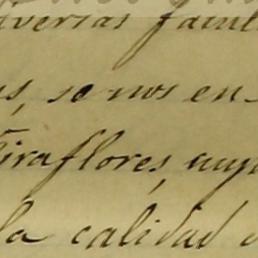 diversas famil
s, se nos en-
Miraflores, cuy
la calidad d